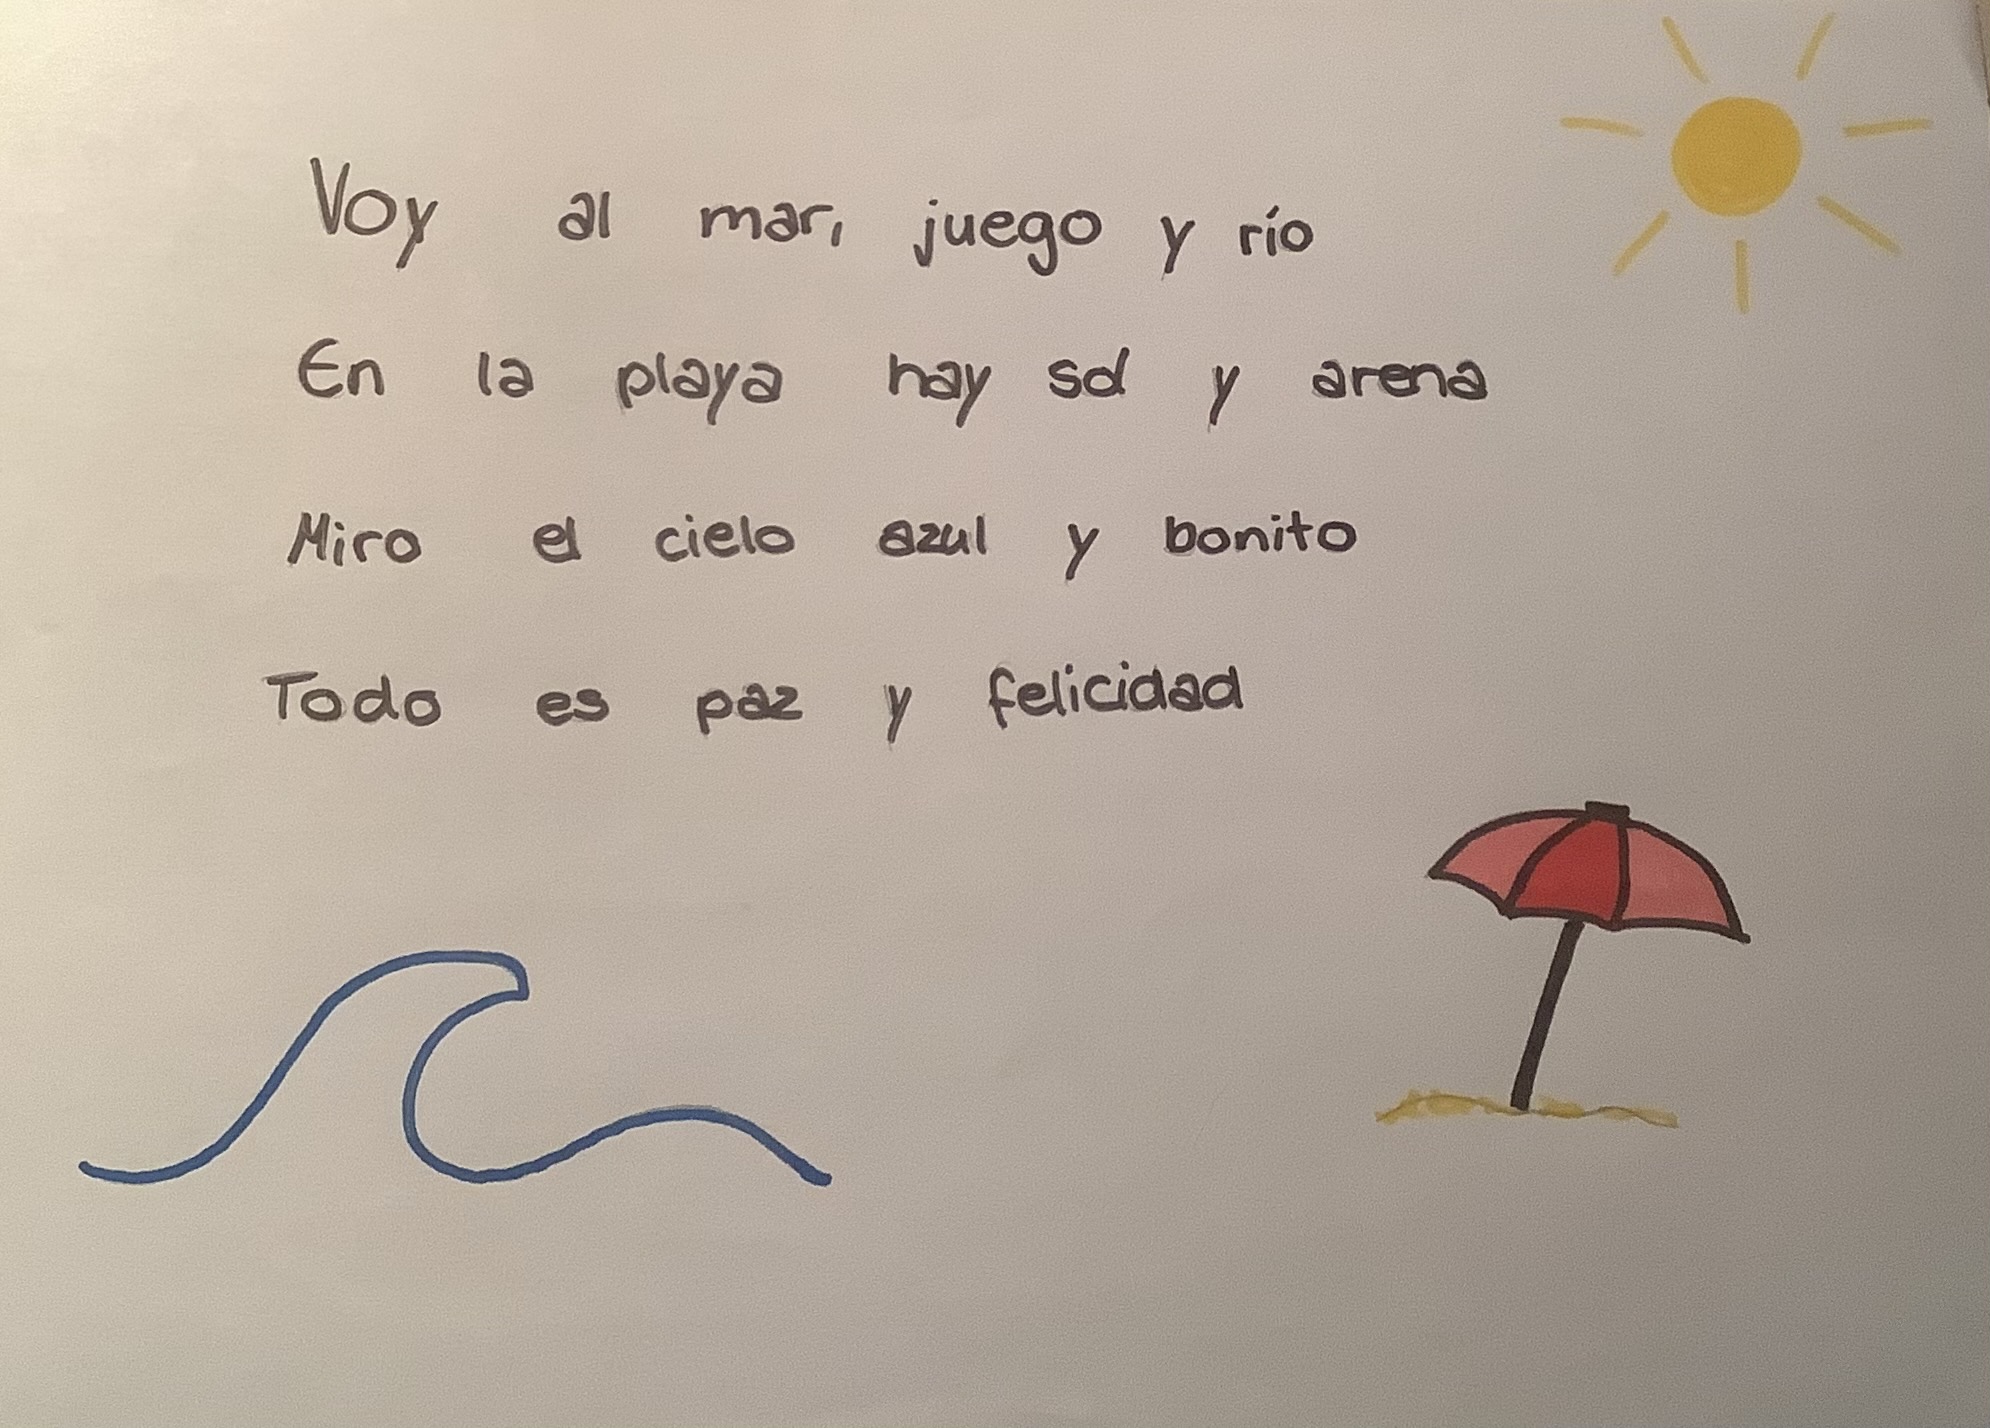 Voy al mar, juego y río
En la playa hay sol y arena
Miro el cielo azul y bonito
Todo es paz y felicidad